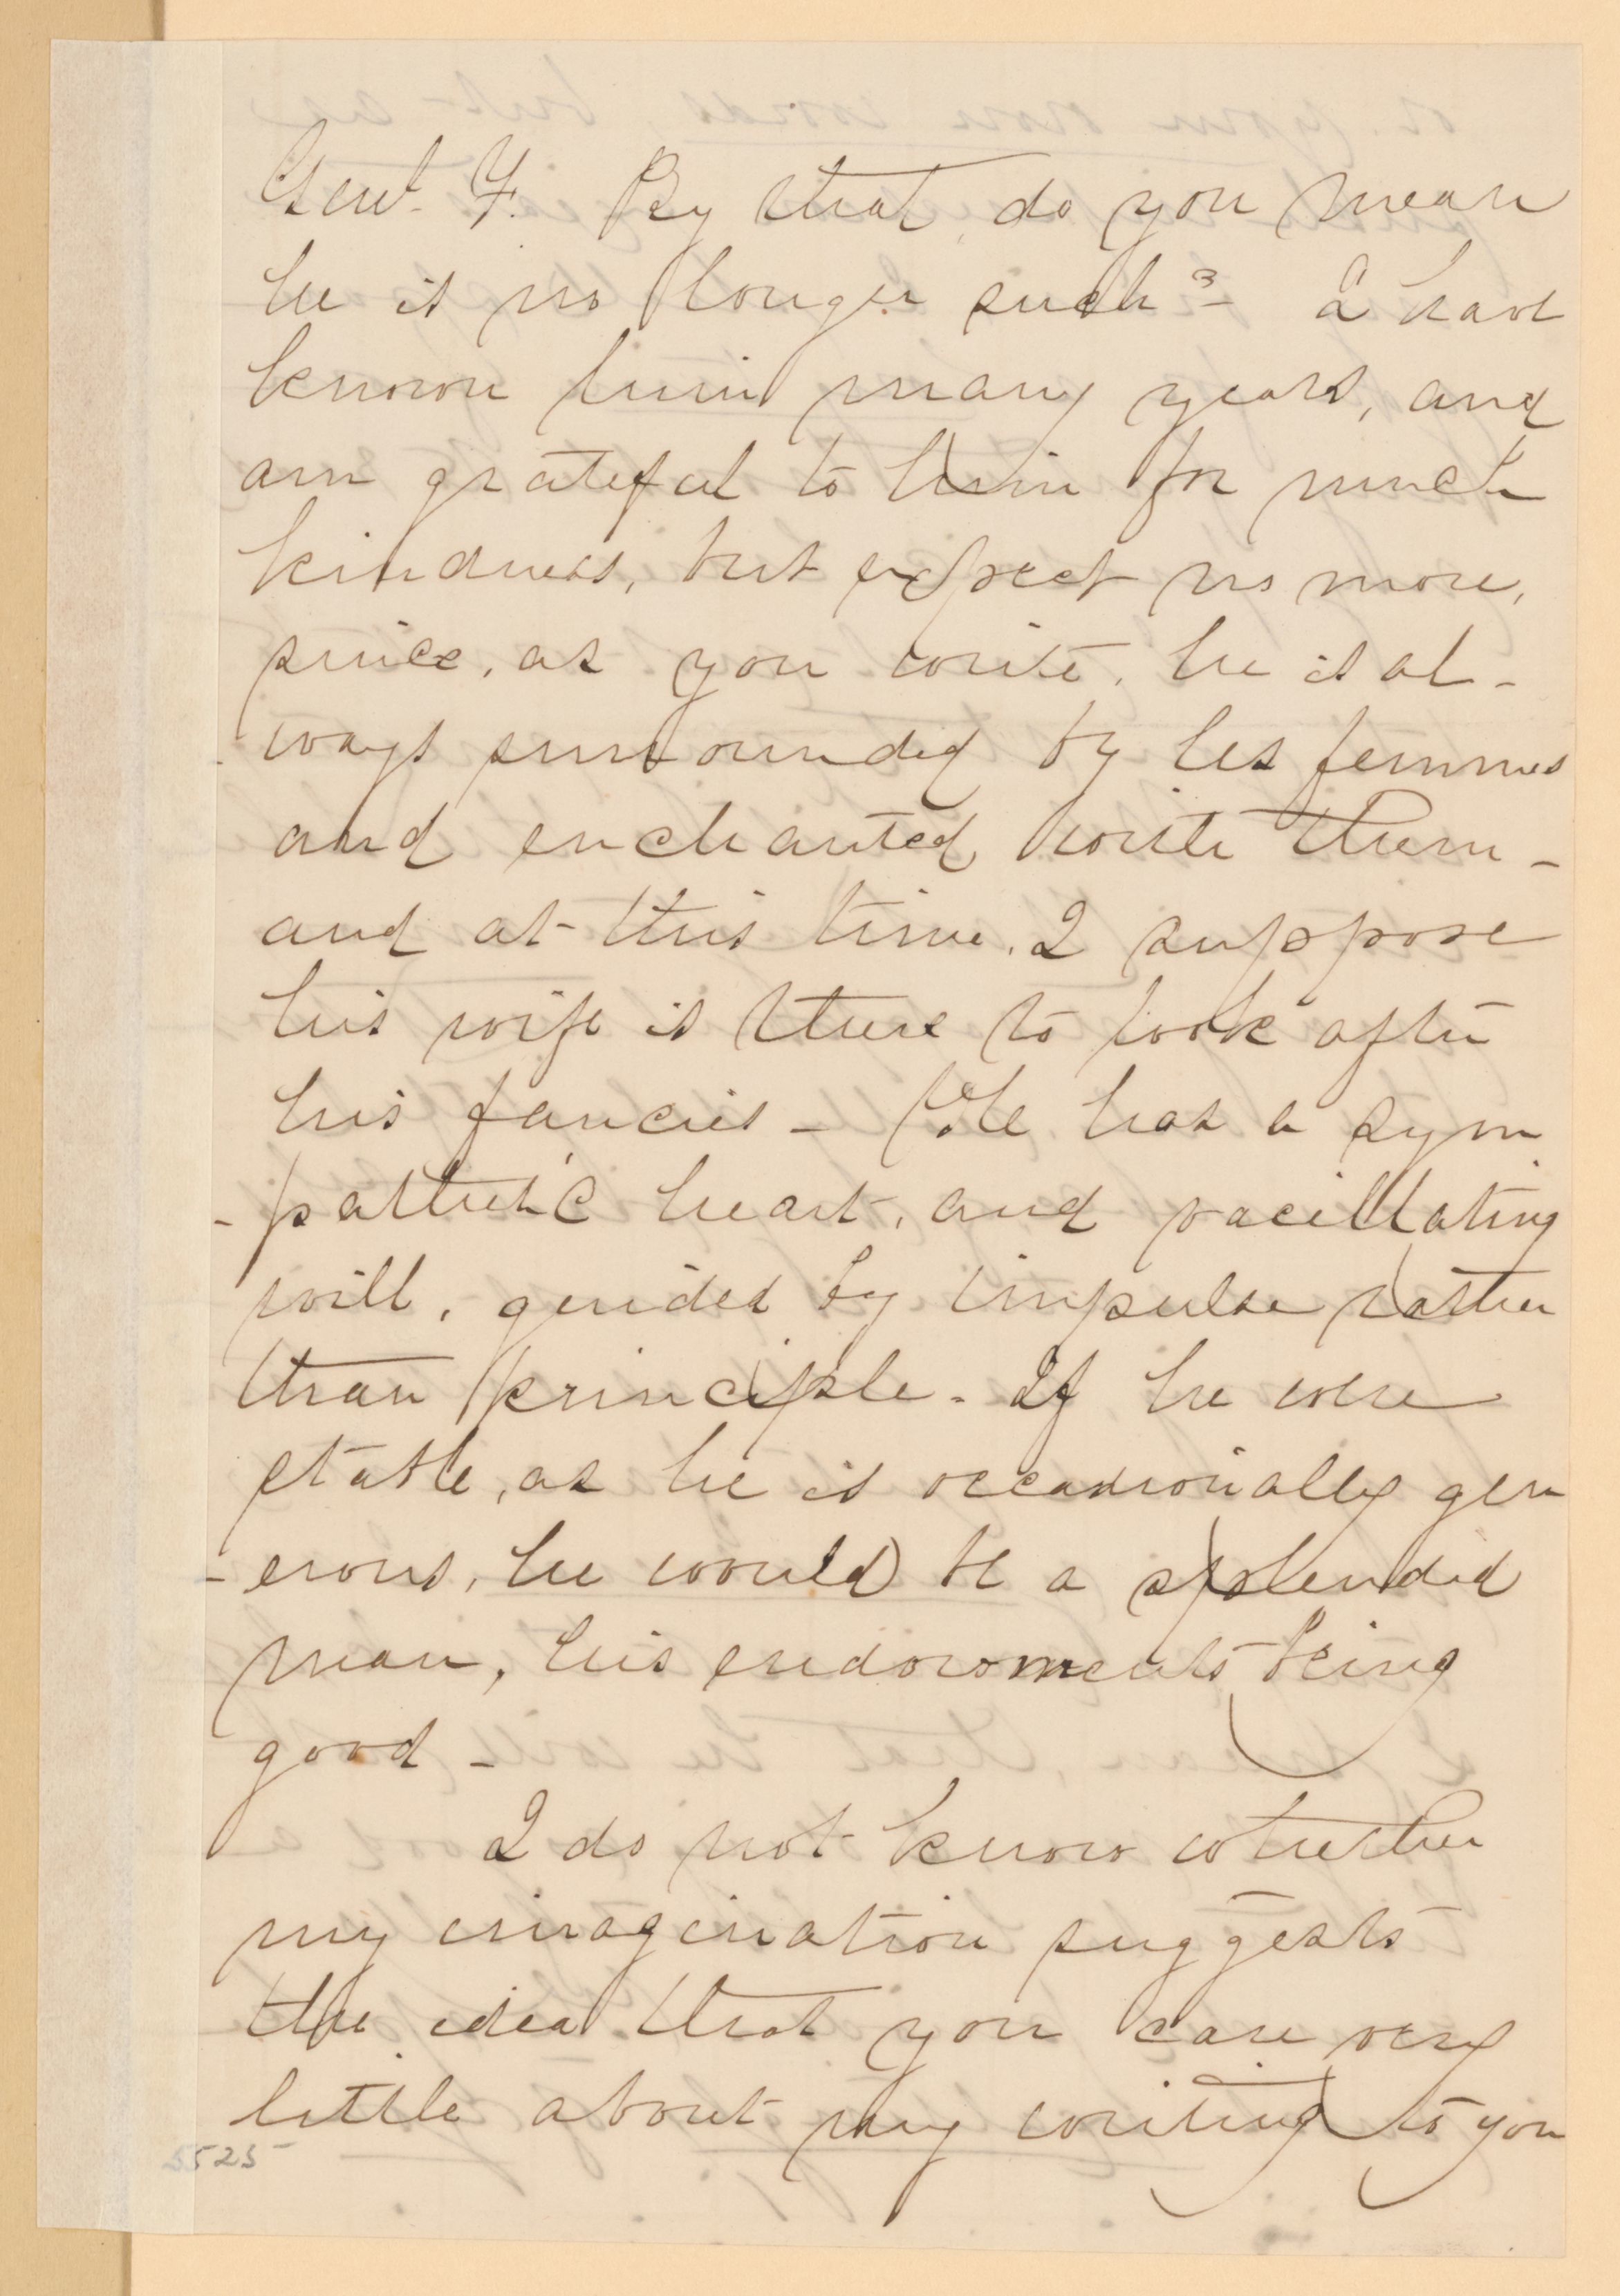 Genl. F. By that, do you mean
he is no longer such? I have
known him many years, and
am grateful to him for much
kindness, but expect no more,
since, as you write, he is al-
ways surrounded by les femmes
and enchanted with them -
and at this time, I suppose
his wife is there to look after
his fancies - He has a sym
-pathetic heart, and vacillating
will, guided by impulse rather
than principle. If he were
stable, as he is occasionally gen
-erous, he would be a splendid
man, his endowments being
good -
I do not know whether
my imagination suggests
the idea that you care very
little about my writing to you
5525